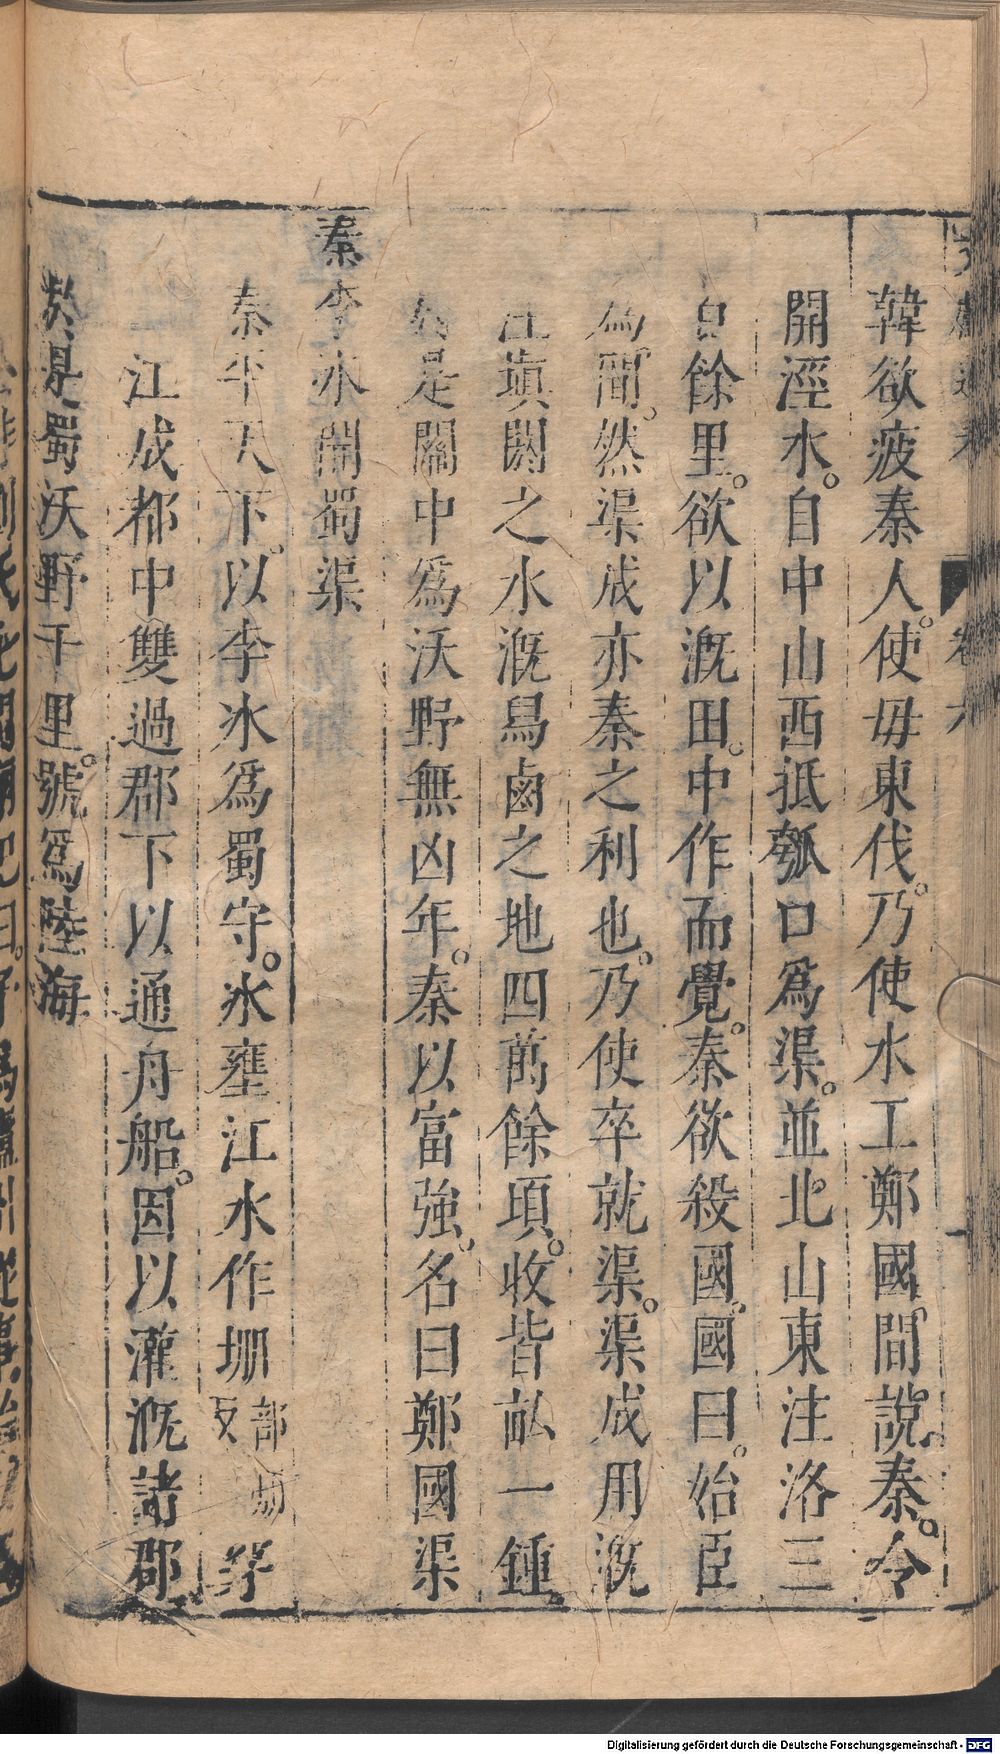 韓欲疲秦人。使毋東伐。乃使水工鄭國間說秦。令
開涇水。自中山西抵瓠口爲渠。並北山東注洛三
百餘里。欲以溉田。中作而覺。秦欲殺國。國曰。始臣
爲間。然渠成亦秦之利也。乃使卒就渠。渠成用溉
注塡閼之水溉舄鹵之地四萬餘頃。收皆畝一鍾。
於是關中爲沃野無凶年。秦以富強。名曰鄭國渠
秦李冰開蜀渠
秦平天下。以李冰爲蜀守。冰壅江水作堋部朋反穿
江成都中雙過郡下以通舟船。因以灌溉諸郡
於是蜀沃野千里。號爲陸海
卷六
Digitalisierung gefördert durch die Deutsche Forschungsgemeinschaft - DFG